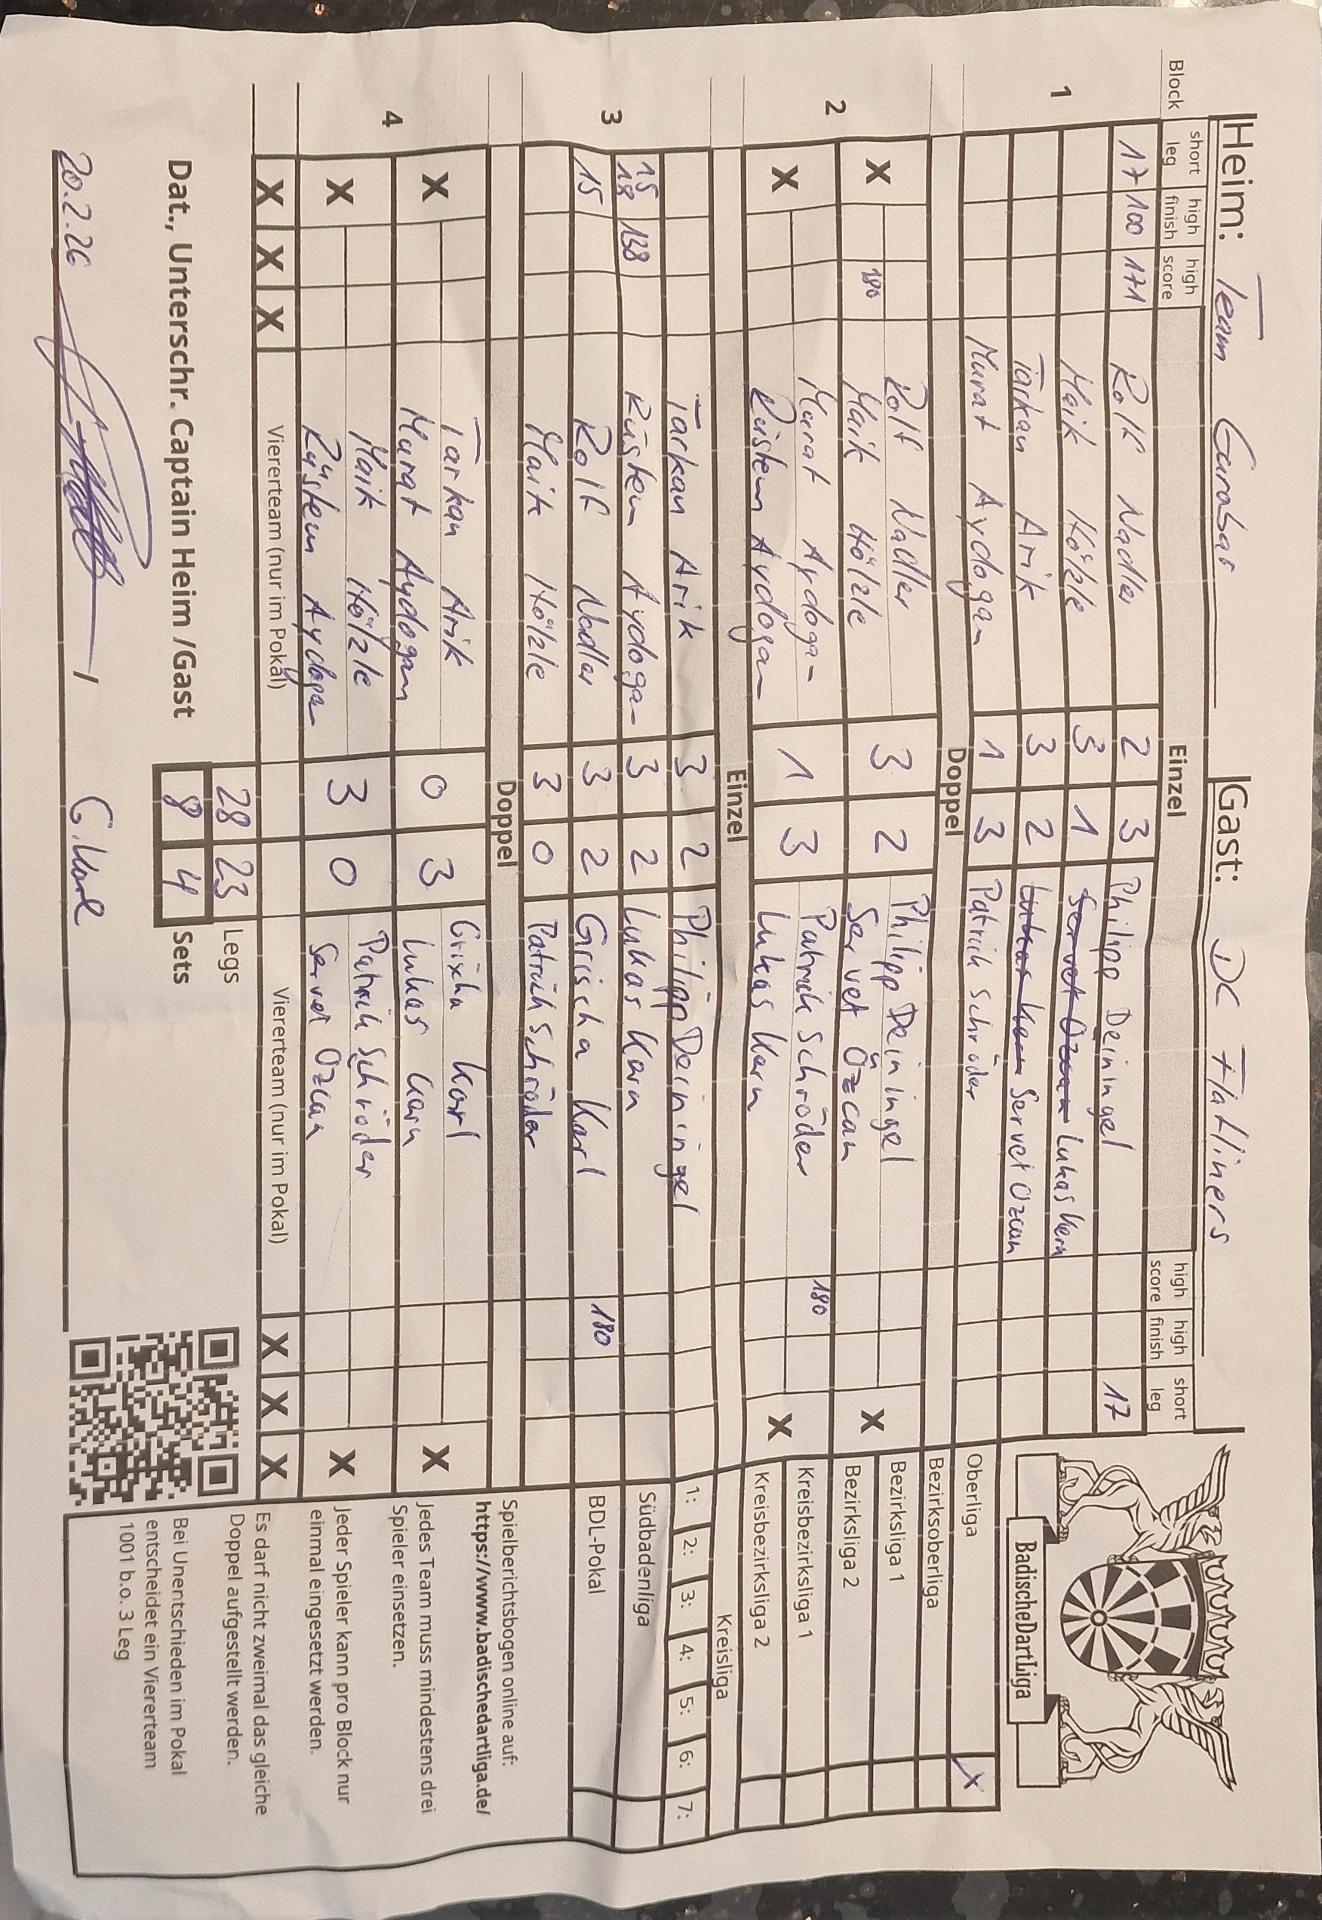 Heim: Team Carabao Gast: DC Flatliners
Block short leg high finish high score Einzel high score high finish short leg
1 17 100 171 Rolf Nadler 2 3 Philipp Deiningel 17
Maik Hölzle 3 1 Servet Ozcan Lukas Kern
Tarkan Arik 3 2 Lukas Kern Servet Ozcan
Murat Aydogan 1 3 Patrick Schröder
Doppel
2 X 180 Rolf Nadler 3 2 Philipp Deiningel X
Maik Hölzle Servet Özcan
X Murat Aydogan 1 3 Patrick Schröder 180 X
Rüstem Aydogan Lukas Kern
Einzel
3 Tarkan Arik 3 2 Philipp Deiningel
15 18 138 Rüstem Aydogan 3 2 Lukas Kern
15 Rolf Nadler 3 2 Grischa Karl 180
Maik Hölzle 3 0 Patrick Schröder
Doppel
4 X Tarkan Arik 0 3 Grischa Karl X
Murat Aydogan Lukas Kern
X Maik Hölzle 3 0 Patrick Schröder X
Rüstem Aydogan Servet Ozcan
X X X Vierерteam (nur im Pokal) Viererteam (nur im Pokal) X X X
28 23 Legs
Dat., Unterschr. Captain Heim /Gast 8 4 Sets
20.2.26 / G. Karl
BadischeDartLiga
Oberliga X
Bezirksoberliga
Bezirksliga 1
Bezirksliga 2
Kreisbezirksliga 1
Kreisbezirksliga 2
Kreisliga
1: 2: 3: 4: 5: 6: 7:
Südbadenliga
BDL-Pokal
Spielberichtsbogen online auf:
https://www.badischedartliga.de/
Jedes Team muss mindestens drei
Spieler einsetzen.
Jeder Spieler kann pro Block nur
einmal eingesetzt werden.
Es darf nicht zweimal das gleiche
Doppel aufgestellt werden.
Bei Unentschieden im Pokal
entscheidet ein Viererteam
1001 b.o. 3 Leg